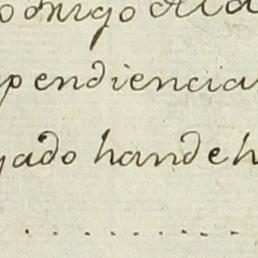 odrigo
pendiencia
gado han de h
..........